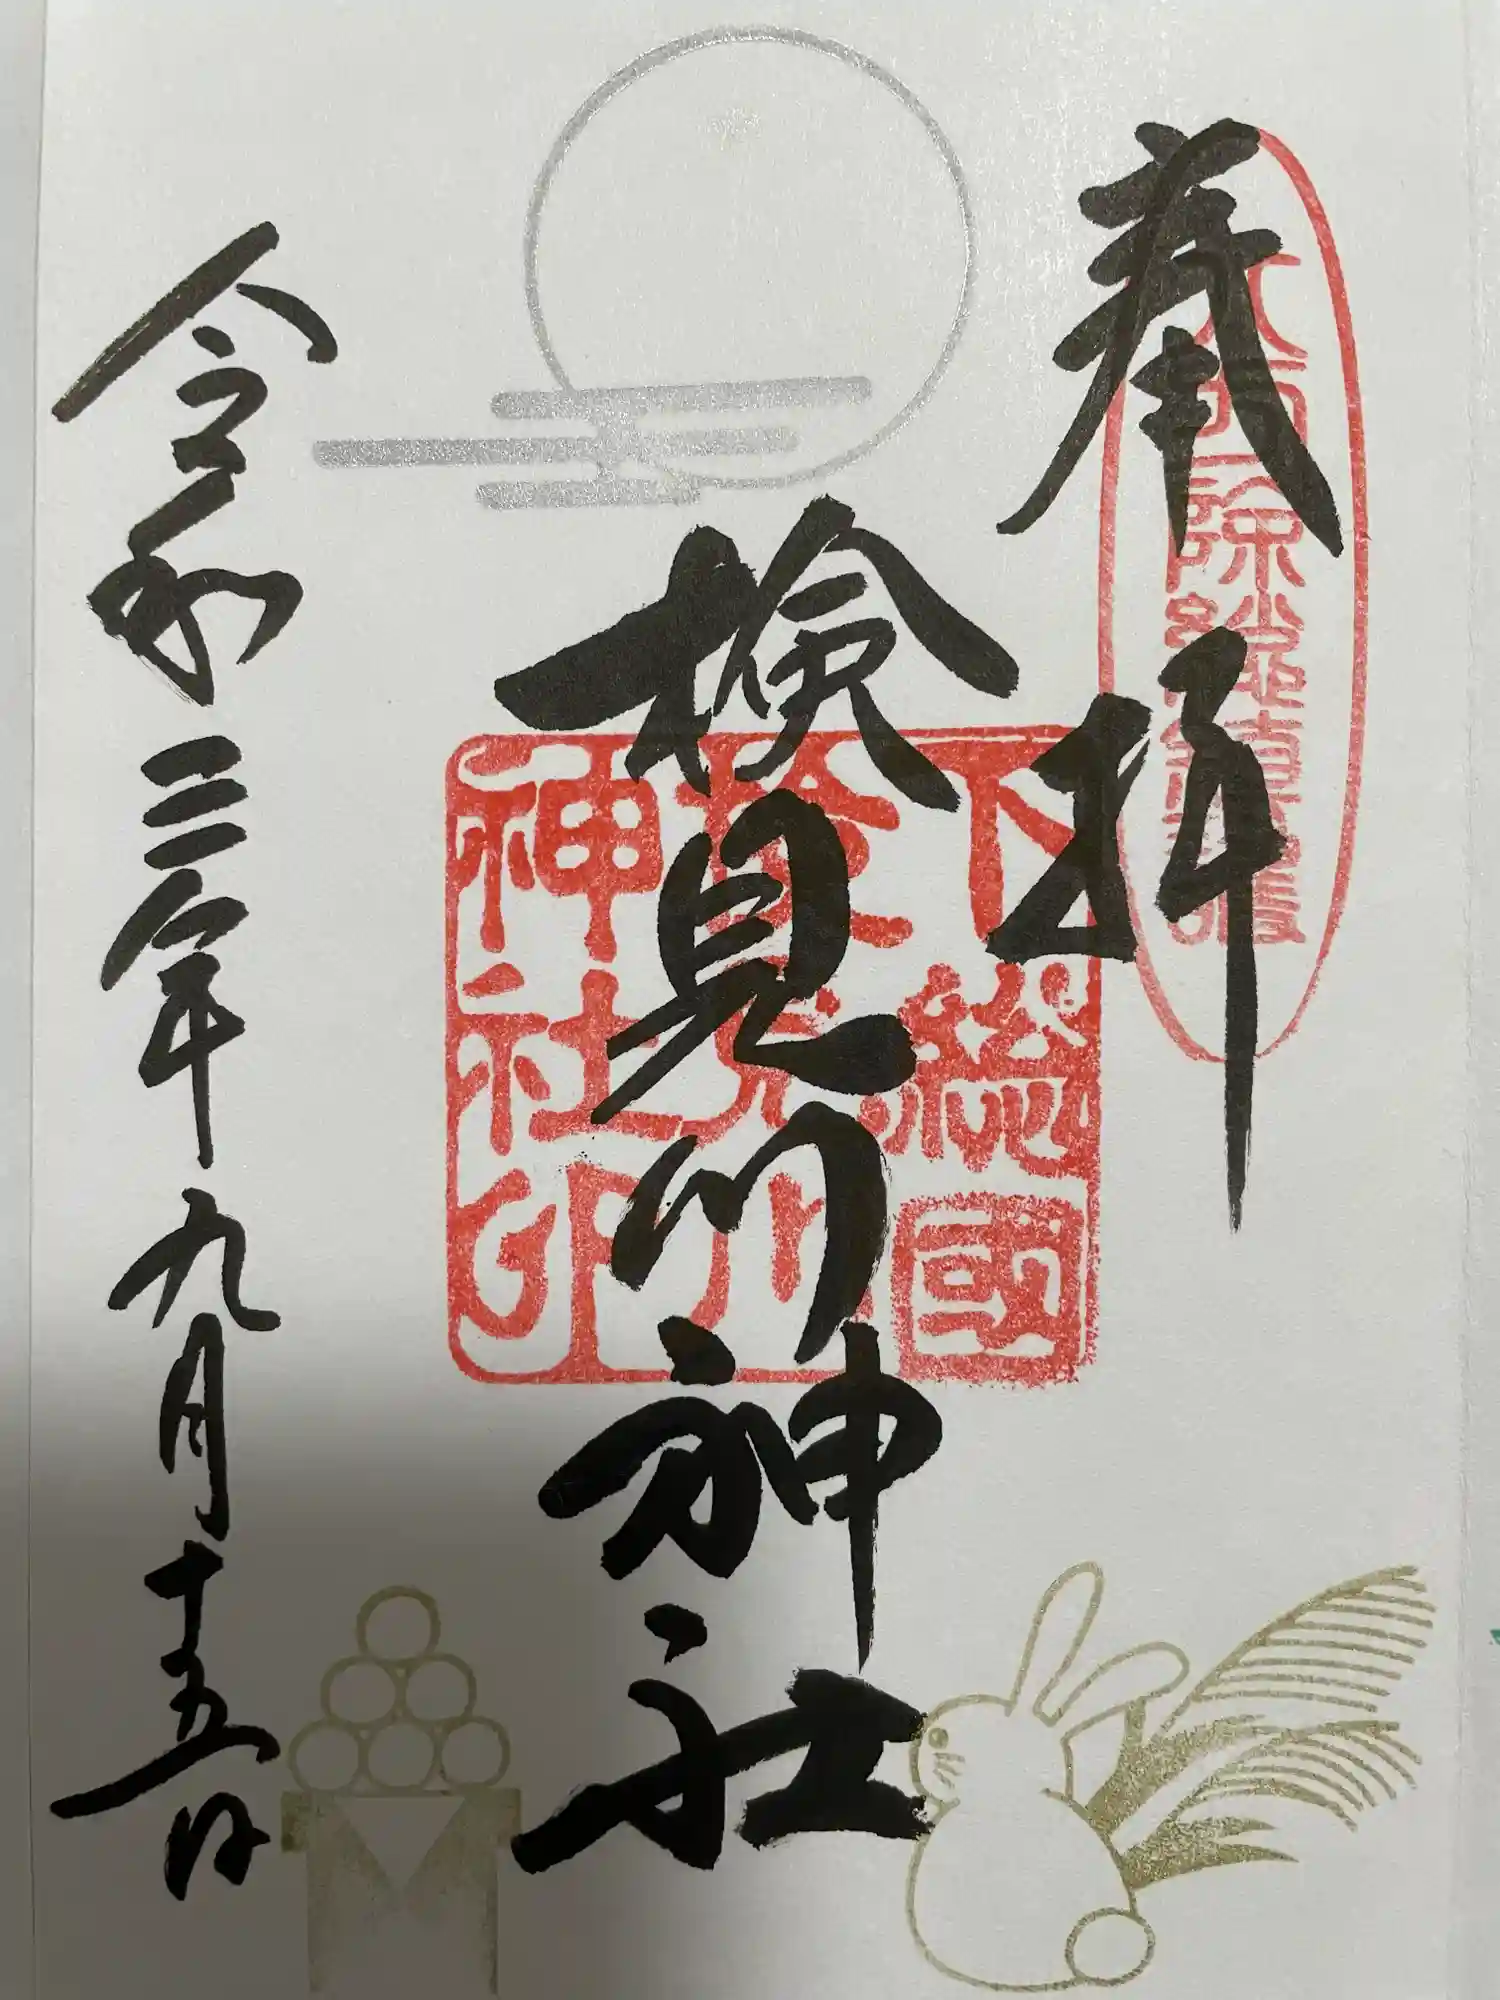 奉拝
八方除総鎮護
検見川神社
下総國
検見川
神社印
令和三年九月十五日